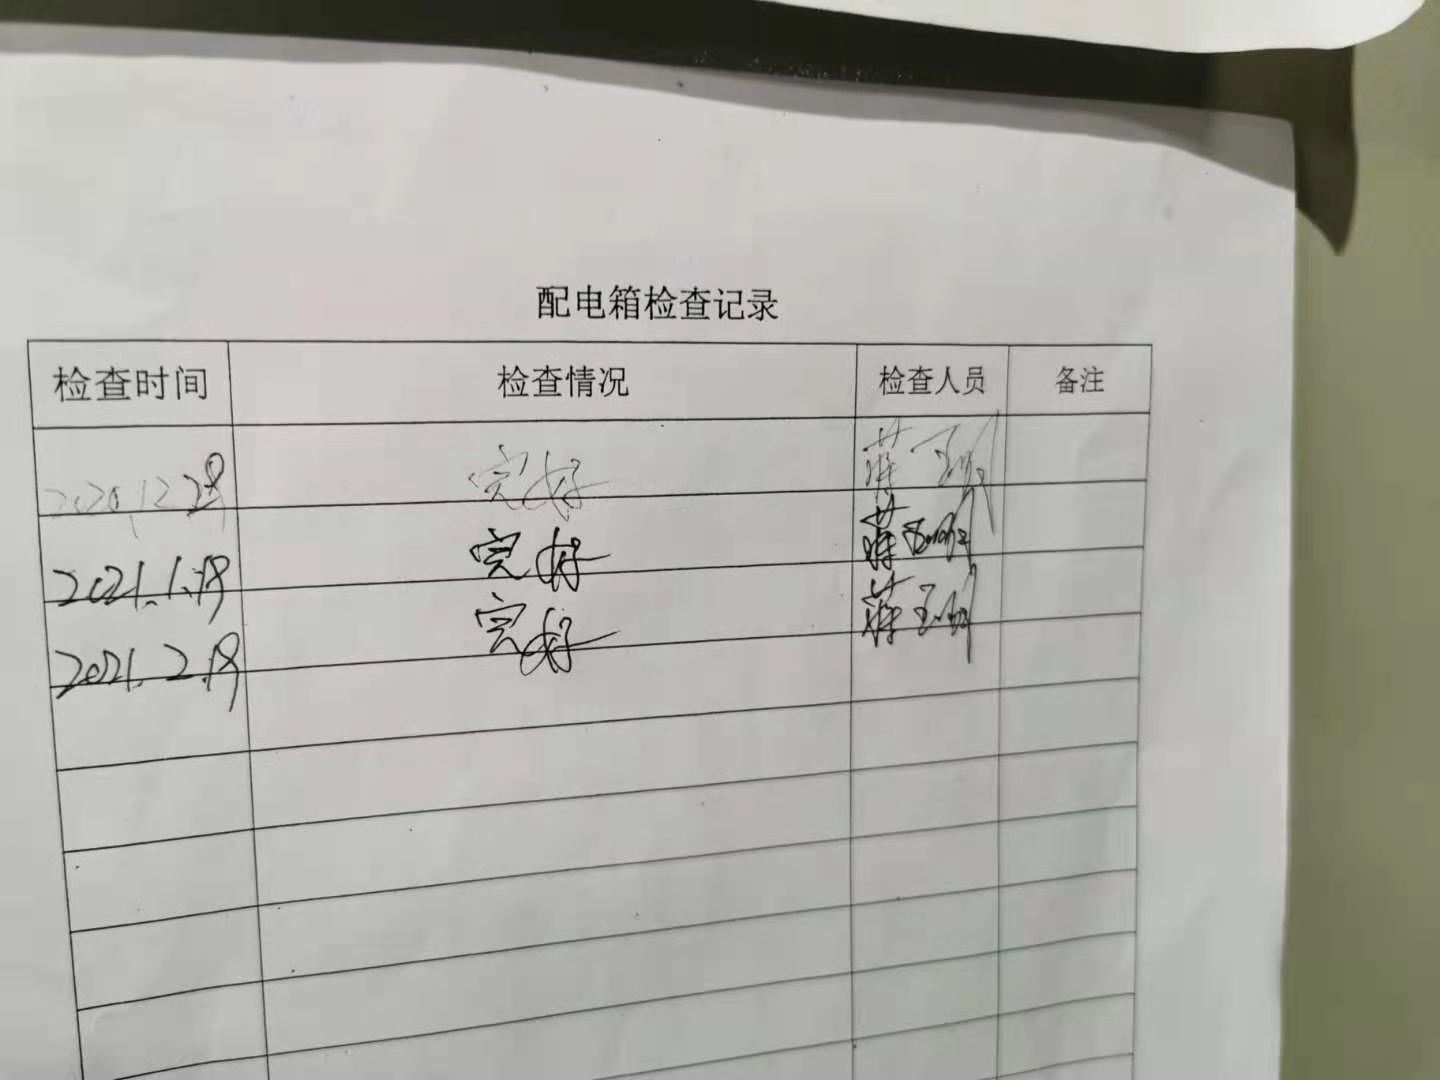 配电箱检查记录
检查时间 检查情况 检查人员 备注
2020.12.28 完好 蒋
2021.1.18 完好 蒋
2021.2.18 完好 蒋玉